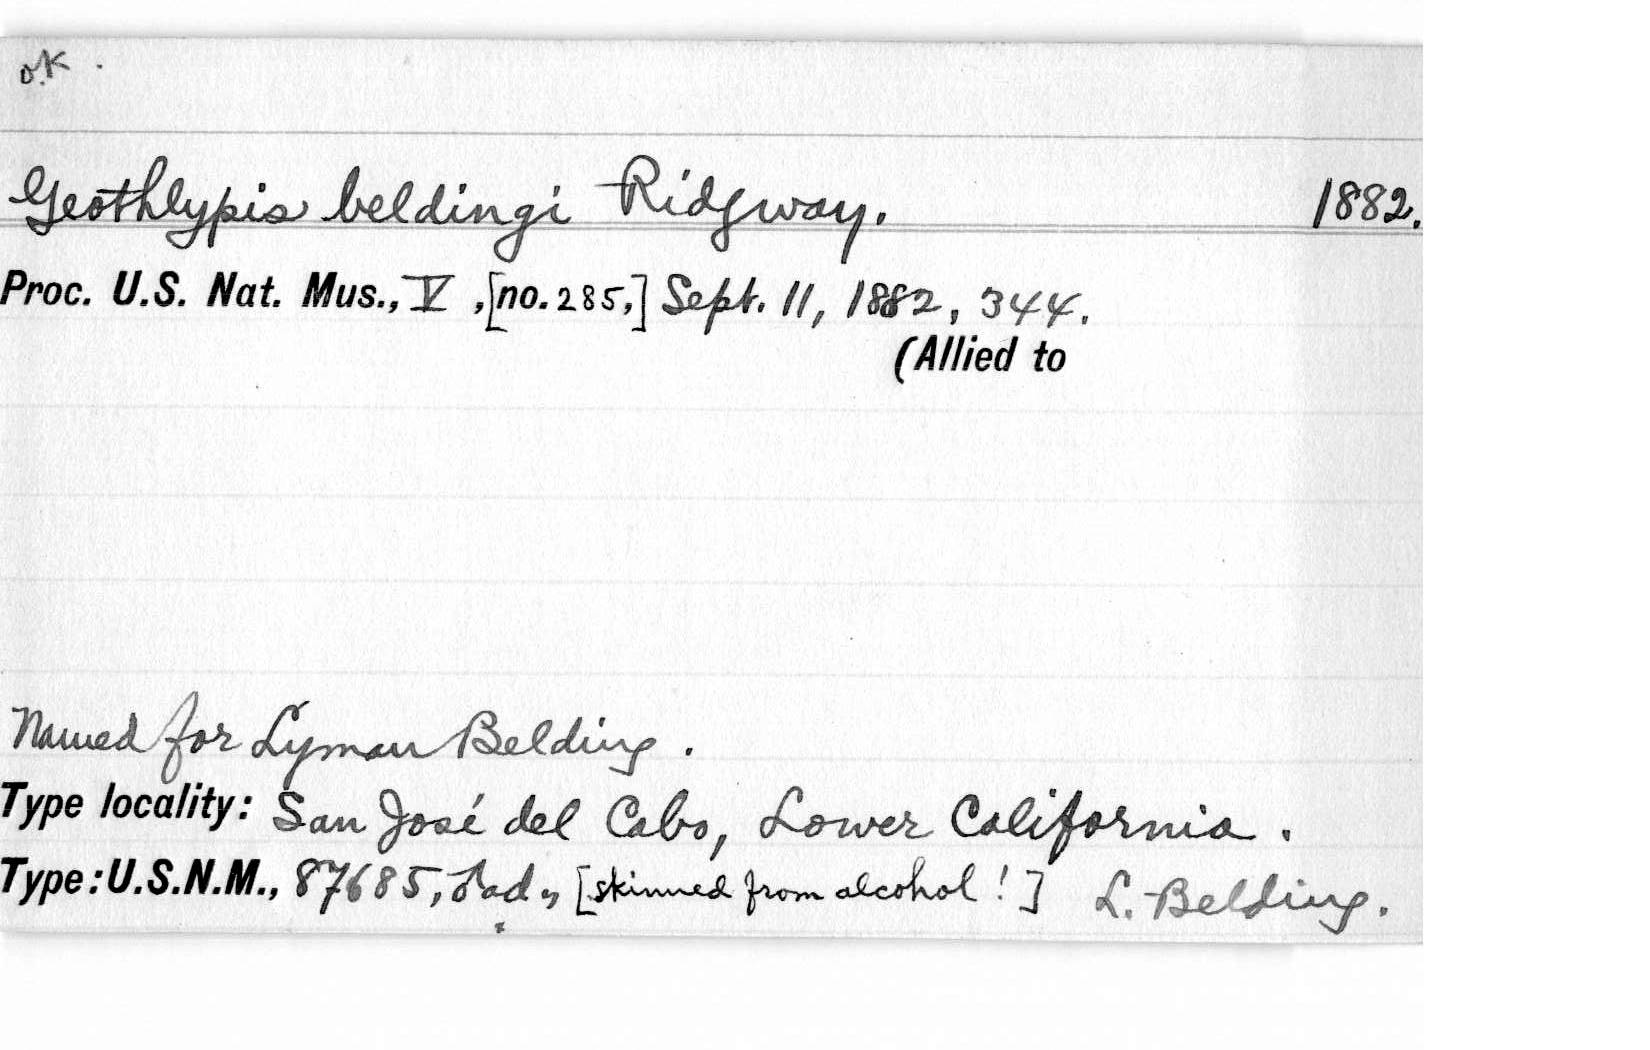 o.K.
Geothlypis beldingi Ridgway. 1882.
Proc. U.S. Nat. Mus., V, [no. 285,] Sept. 11, 1882, 344.
(Allied to
Named for Lyman Belding.
Type locality: San José del Cabo, Lower California.
Type: U.S.N.M., 87685, ♂ ad., [skinned from alcohol!] L. Belding.